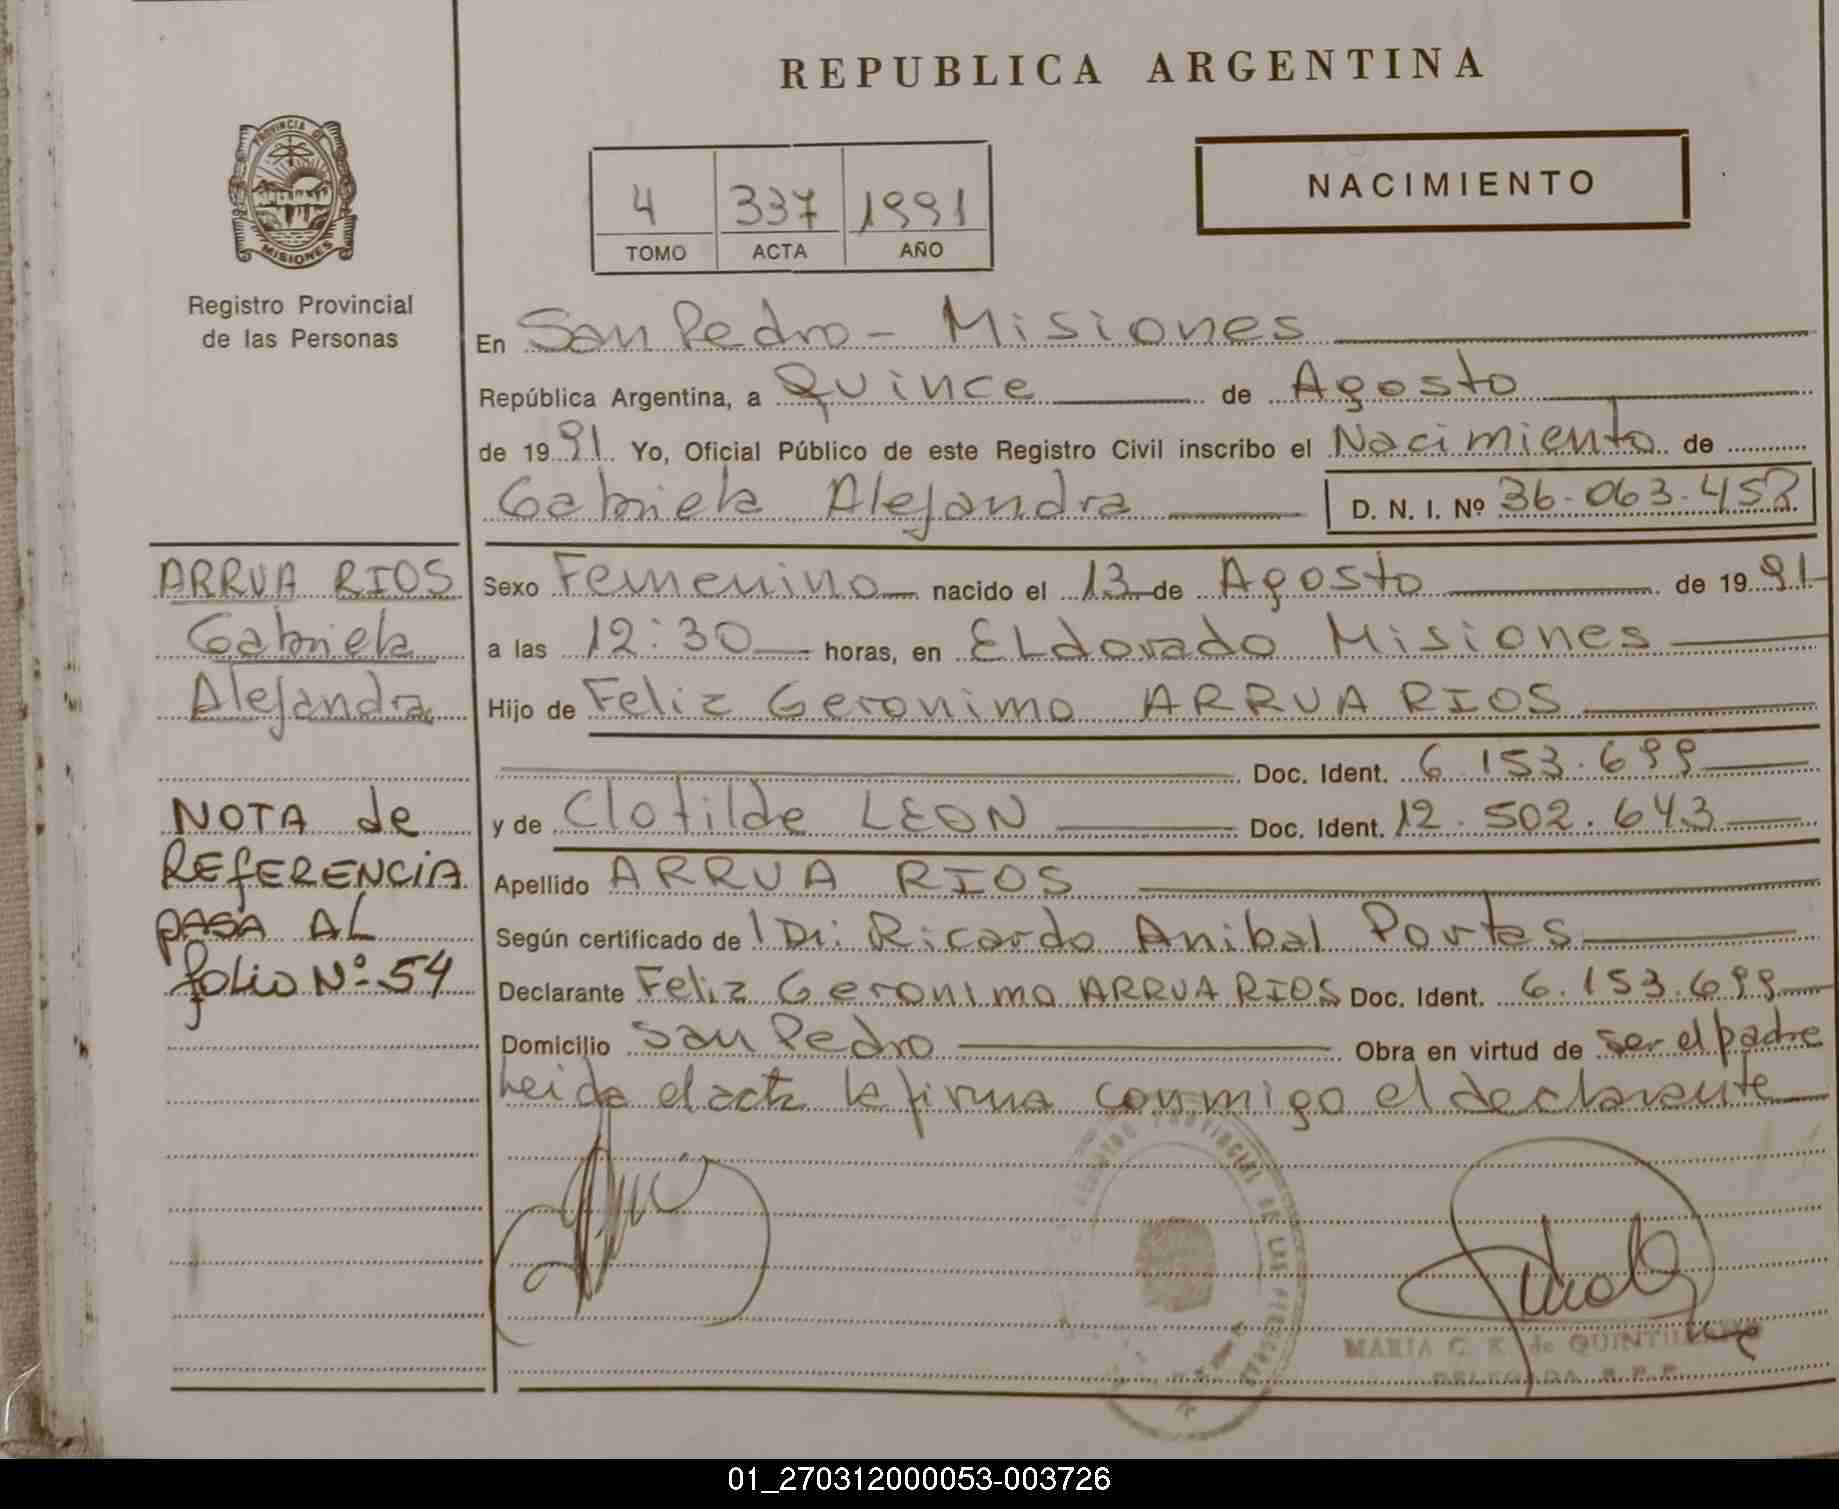 REPUBLICA ARGENTINA
PROVINCIA DE
MISIONES
Registro Provincial
de las Personas
4 337 1991
TOMO ACTA AÑO
NACIMIENTO
En San Pedro - Misiones
República Argentina, a Quince de Agosto
de 1991 Yo, Oficial Público de este Registro Civil inscribo el Nacimiento de
Gabriela Alejandra D. N. I. Nº 36.063.452
ARRUA RIOS
Gabriela
Alejandra
NOTA de
REfERENCiA
pASA AL
foLio Nº 54
Sexo Femenino nacido el 13 de Agosto de 1991
a las 12:30 horas, en ELdorado Misiones
Hijo de Feliz Geronimo ARRUA RIOS
Doc. Ident. 6.153.699
y de Clotilde LEON Doc. Ident. 12.502.643
Apellido ARRUA RIOS
Según certificado de Ricardo Anibal Portes
Declarante Feliz Geronimo ARRUA RIOS Doc. Ident. 6.153.699
Domicilio San Pedro Obra en virtud de ser el padre
Leida el acta la firma conmigo el declarante
REGISTRO PROVINCIAL DE LAS PERSONAS
MARIA C. K. de
DELEGADA R.P.P.
01_270312000053-003726